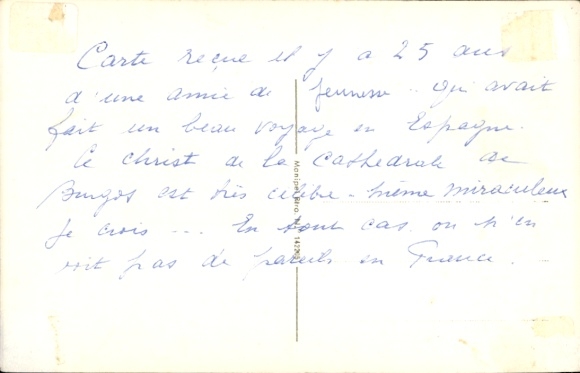 Carte reçue il y a 25 ans
d'une amie de jeunesse.. qui avait
fait un beau voyage en Espagne.
Ce christ de la Cathédrale de
Burgos est très célèbre - même miraculeux
je crois --- En tout cas on n'en
voit pas de pareils en France.